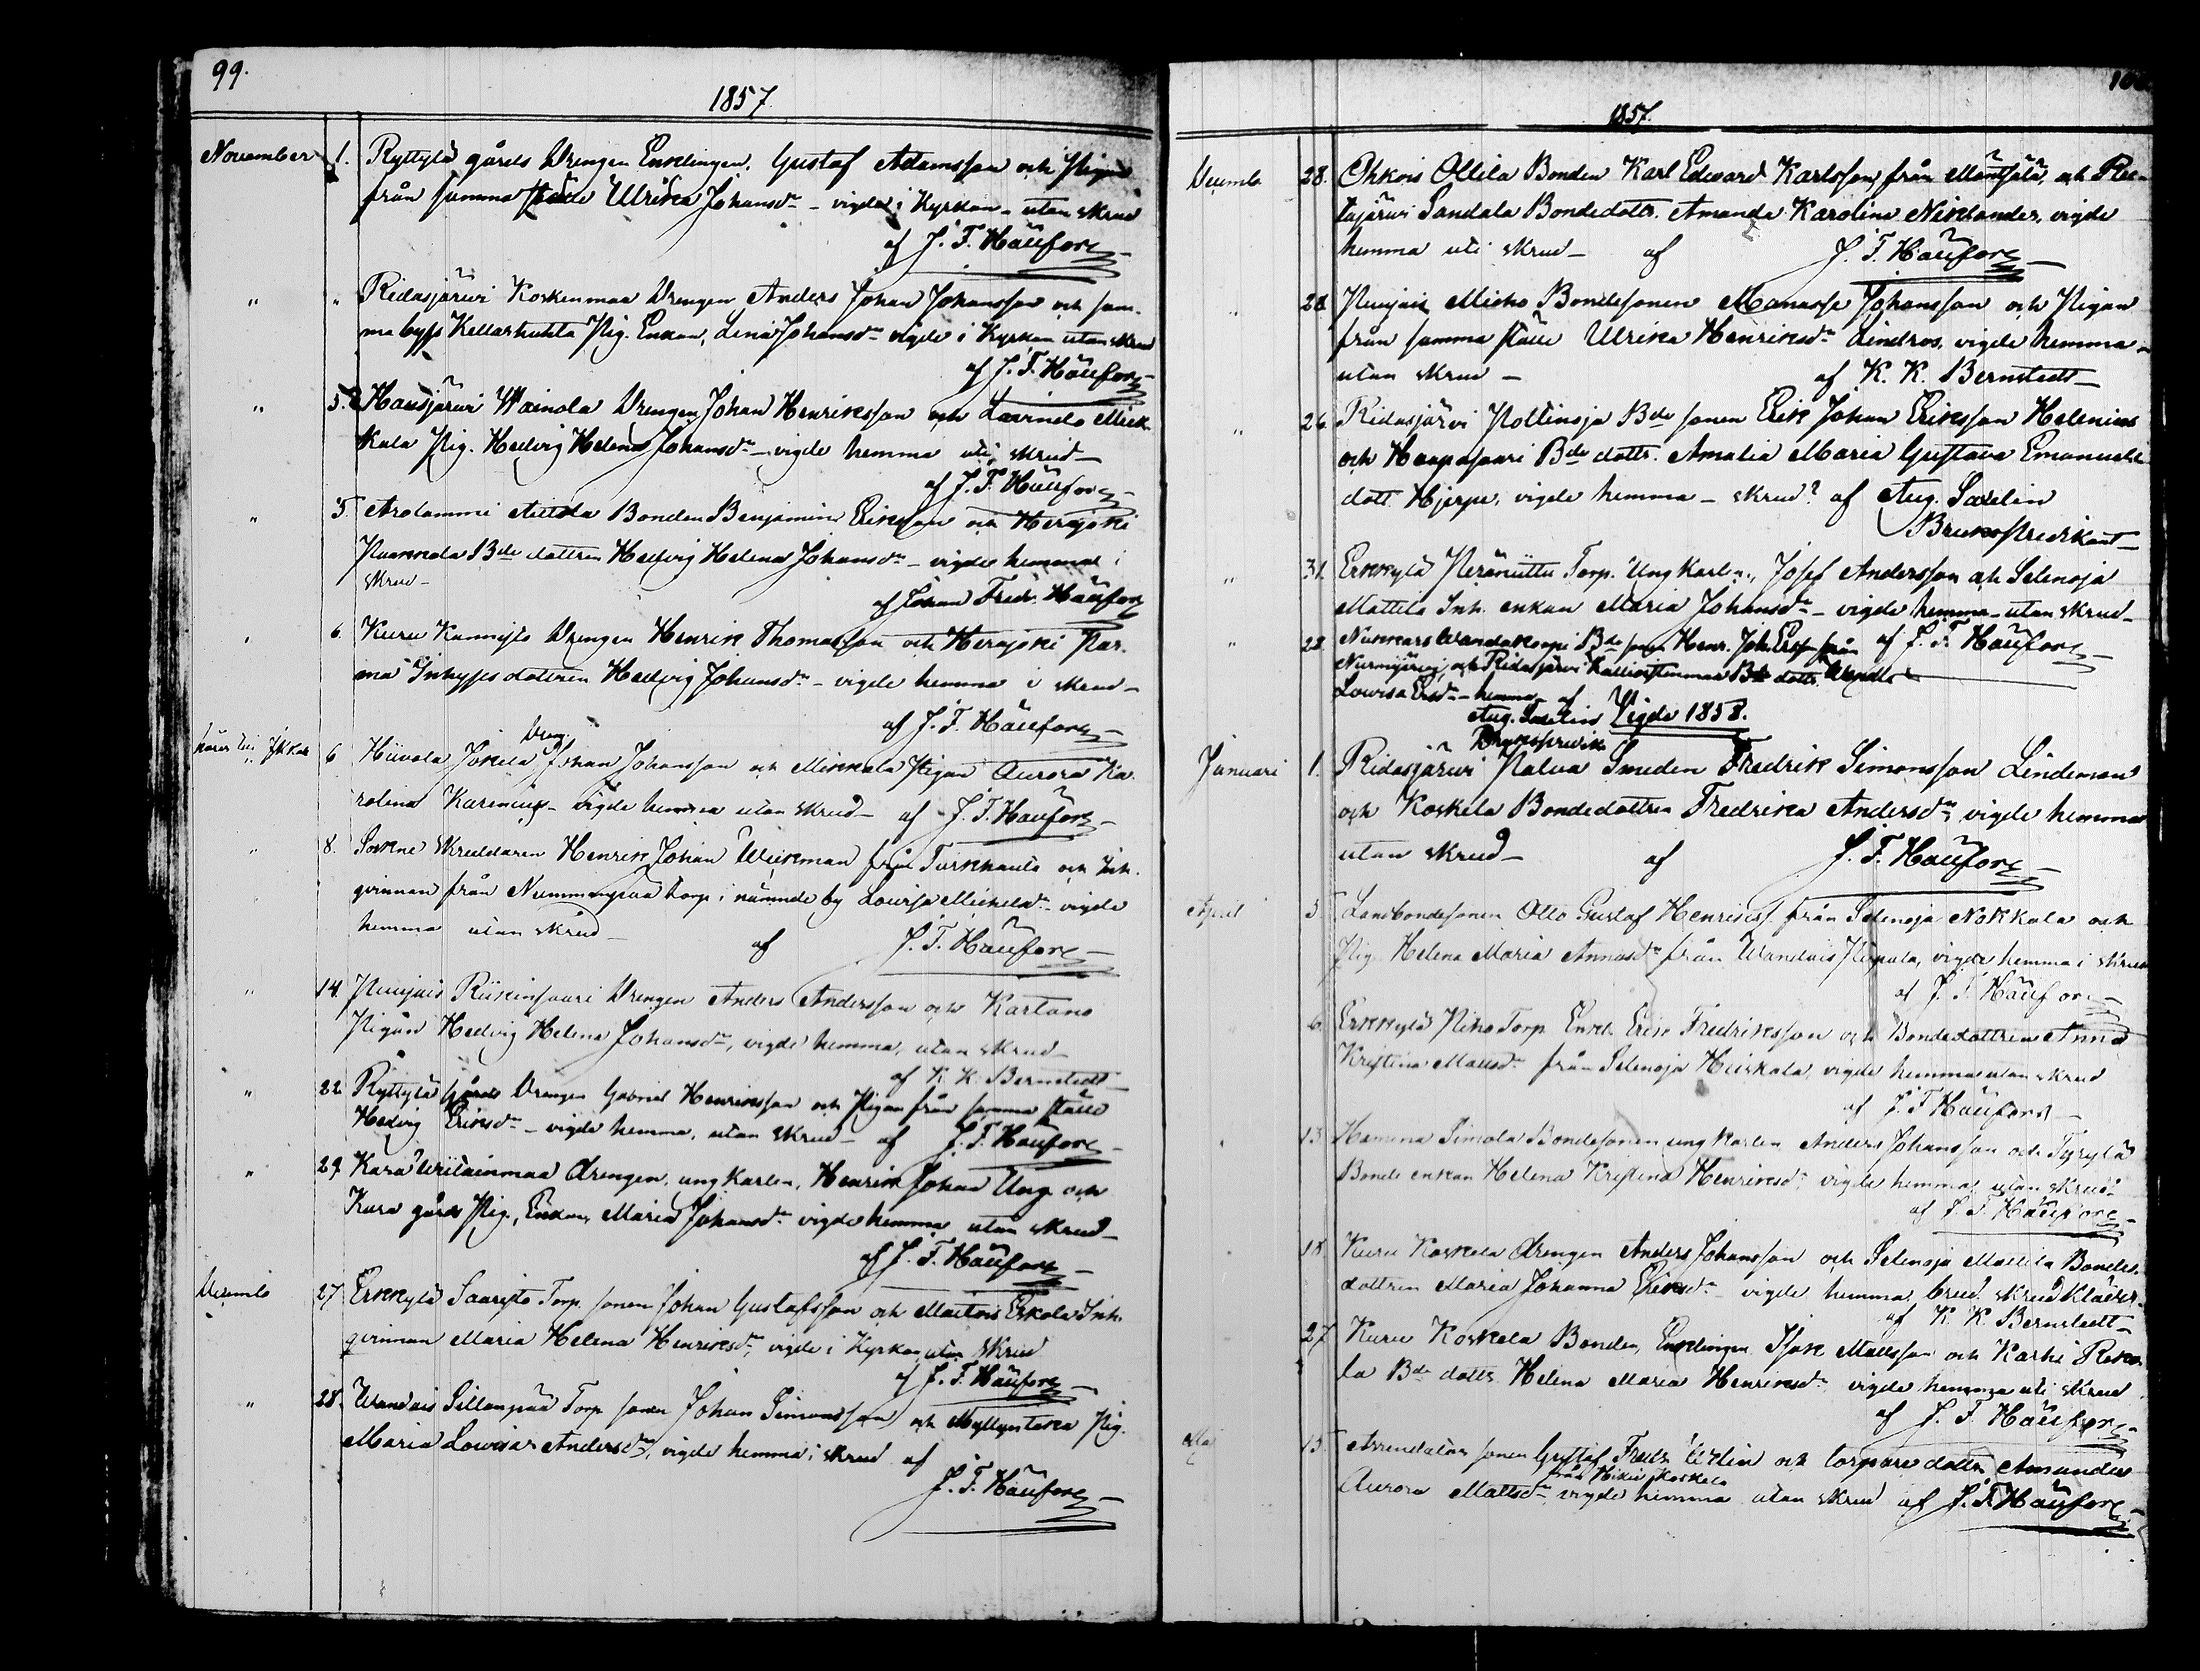 99.
1857
November 1. Ryttylä gårds Drengen Enklingen, Gustaf Adamsson och Pigan
från samma ställe Ulrika Johansdr - vigda i Kyrkan - utan skrud
af J. F. Häufors
" " Ridasjärwi Koskenmaa Drengen Anders Johan Johansson och sam-
ma bys Kellarhuhta Pig. Enkan, Lena Johansdr vigde i Kyrkan utan skrud
af J. F. Häufors
" 5. Hausjärwi Wainola Drengen Johan Henriksson och Lavinto Mick
kala Pig. Hedvig Helena Johansdr - vigde hemma uti skrud -
af J. F. Häufors
" 5. Arolammi Anttila Bonden Benjamin Eriksson och Herajoki
Paavola Bde dottren Hedvig Helena Johansdr - vigde hemma i
skrud -
af Johan Fredr. Häufors
" 6. Kuru Kannisto Drengen Henrik Thomasson och Herajoki Par-
ma Inhyses dottren Hedvig Johansdr - vigde hemma i skrud -
af J. F. Häufors
Dreng.
6 Hiivola Jokela Johan Johansson och Mikkola Pigan Aurora Ka-
rolina Karenius - vigde hemma utan skrud - af J. F. Häufors
" 8. Sockne Skräddaren Henrik Johan Wickman från Turkhauta och Inh.
qvinnan från Nummenpää torp i nämnde by Lovisa Michelsdr vigde
hemma utan skrud -
af J. F. Häufors
" 14. Puujais Riikinsaari Drengen Anders Andersson och Kartano
Pigan Hedvig Helena Johansdr, vigde hemma, utan skrud -
af K. K. Bernstedt
" 22 Ryttylä gårds Drengen Gabriel Henriksson och Pigan från samma ställe
Hedvig Eriksdr - vigde hemma, utan skrud - af J. F. Häufors
" 29. Kara drengen, ungkarlen, Henrik Johan Ung och
Kara gårds Pig., Enkan, Maria Johansdr vigde hemma utan skrud -
af J. F. Häufors
Decemb 27 Erkkylä Saaristo Torp. sonen Johan Gustafsson och Maitois Erkola Inh.
qvinnan Maria Helena Henriksdr, vigde i Kyrkan utan skrud
af J. F. Häufors
" 28. Wandais Sillanpää Torp sonen Johan Simonsson och Myllyntaka Pig.
Maria Lovisa Andersdr, vigde hemma i skrud af
J. F. Häufors
100
1857.
Decemb 28. Ohkois Ollila Bonden Karl Edward Karlsson, från Mäntsälä, och Ree-
tajärwi Sandala Bondedottr. Amanda Karolina Niklander, vigde
hemma uti skrud - af J. F. Häufors
" 28. Puujais Micko Bondesonen Manasse Johansson och Pigan
från samma ställe Ulrika Henriksdr Lindros, vigde hemma -
utan skrud - af K. K. Bernstedt -
" 26. Ridasjärvi Poltinoja Bde sonen Erik Johan Eriksson Helenius
och Haapasaari Bde dottr. Amalia Maria Gustava Emanuels
dott Hjerpe, vigde hemma - skrud? af Aug. Saxelin
Brukspredikant -
" 31. Erkkylä Peräniittu Torp. Ungkarln., Josef Andersson och Selenoja
Mattila Inh. enkan Maria Johansdr - vigde hemma - utan skrud -
af J. F. Häufors
" 28 Nukkars Wandakorpi Bde sonen Henr. Joh. Ersson från
Nurmijärvi, och Ridasjärvi Kalliostenmaa Bde dottr. Wendla
Lovisa Ersdr - hemma - af
Aug. Saxelin
Brukspredik
Vigde 1858.
Januari 1. Ridasjärwi Palva Smeden Fredrik Simonsson Lindeman
och Koskela Bondedottren Fredrika Andersdr, vigde hemma
utan skrud - af J. F. Häufors
April 5 Landbondesonen Otto Gustaf Henrikss. från Selenoja Nokkala och
Pig Helena Maria Annasdr från Wandais Pispala, vigde hemma i skrud
af J. F. Häufors -
6. Erkkylä Piho Torp. Enkl. Erik Fredriksson och Bondedottren Anna
Kristina Mattsdr från Selenoja Heiskala, vigde hemma utan skrud
af J. F. Häufors -
13. Hamina Simola Bondesonen ungkarlen Anders Johansson och Tyrylä
Bonde enkan Helena Kristina Henriksdr, vigde hemma, utan skrud -
af J. F. Häufors
18. Kuru Koskela drengen Anders Johansson och Selenoja Mattila Bonde-
dottren Maria Johanna Eriksdr vigde hemma, brud skrud klädsr.
af K. K. Bernstedt -
27 Kuru Koskela Bonden, Enklingen Isak Mattsson och Karhi Reko-
la Bde dottr Helena Maria Henriksdr vigde hemma uti skrud
af J. F. Häufors
Maj 15. Arrendators sonen Gustaf Fredr. och torpare dottr Amanda
från Hikiä Koskela
Aurora Mattsdr, vigde hemma utan skrud af J. F. Häufors